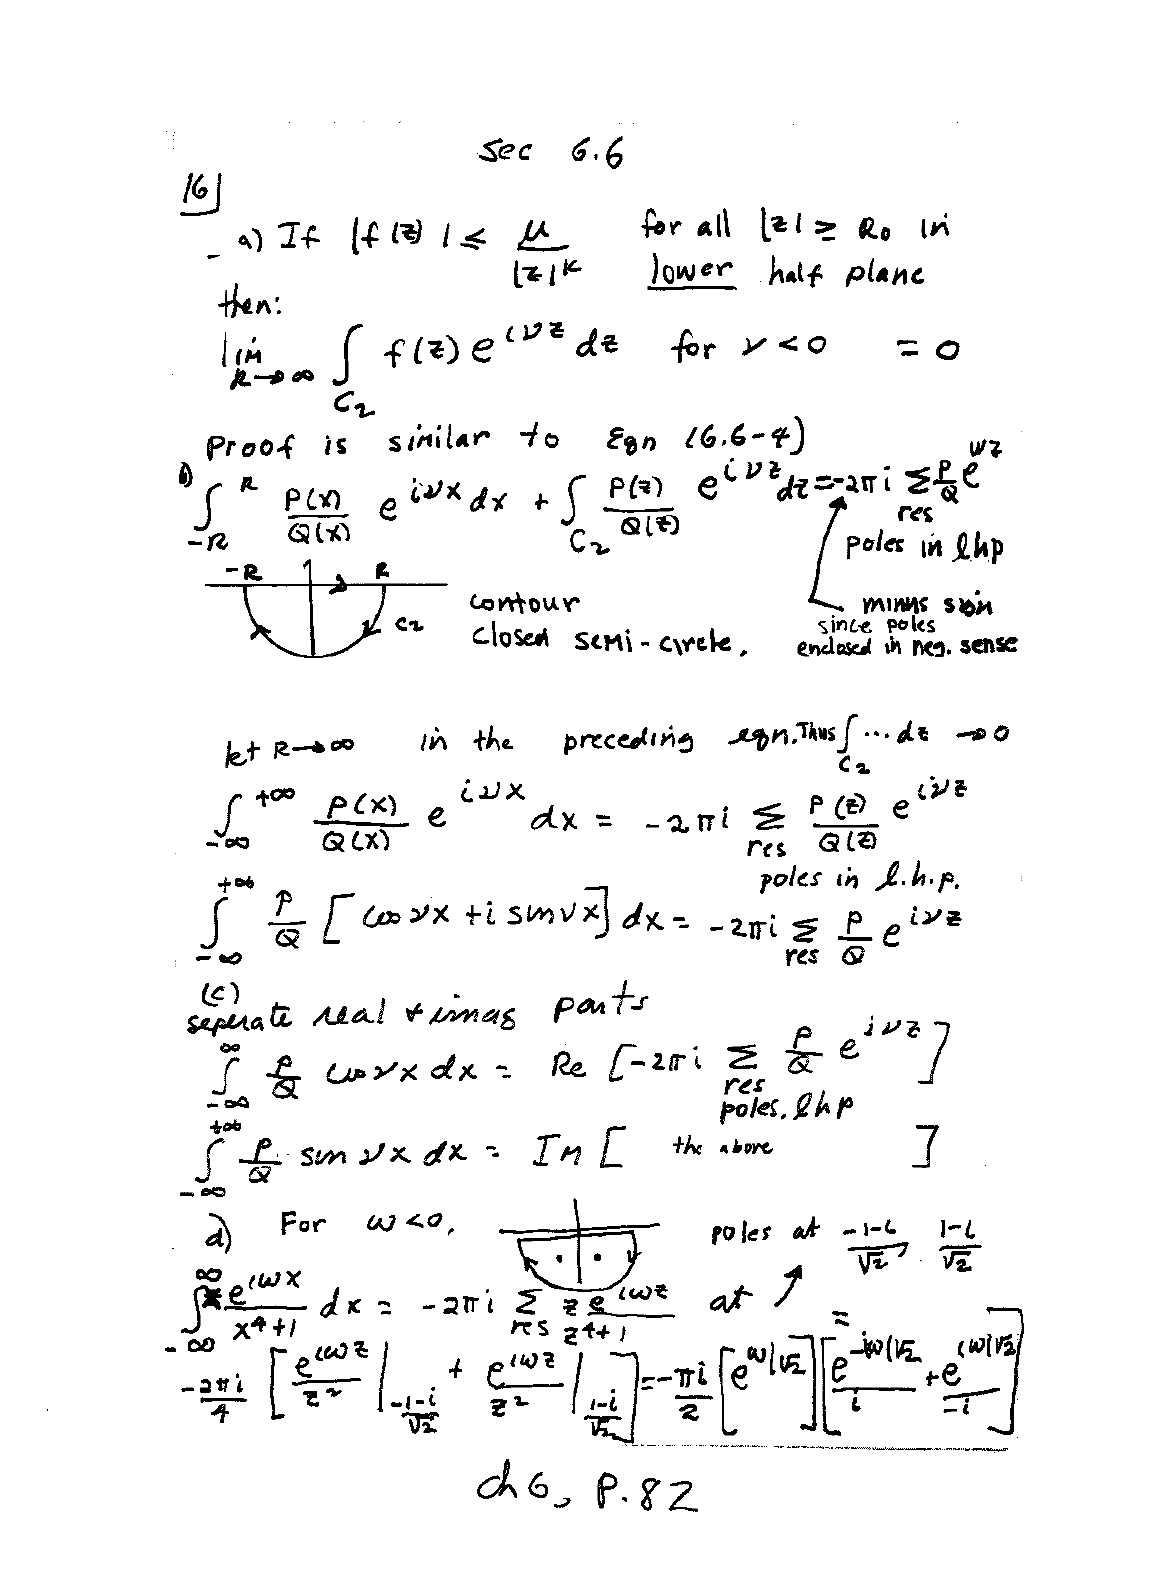 Sec 6.6
16
a) If |f(z)| ≤ μ/|z|^k for all |z| ≥ R₀ in lower half plane
then:
lim R→∞ ∫_{C₂} f(z) e^{iνz} dz for ν<0 = 0
Proof is similar to Eqn (6.6-4)
b) ∫_{-R}^{R} P(x)/Q(x) e^{iνx} dx + ∫_{C₂} P(z)/Q(z) e^{iνz} dz = -2πi Σ res P/Q e^{wz}
poles in lhp
-R R
contour
C₂ closed semi-circle.
minus sign
since poles
enclosed in neg. sense
let R→∞ in the preceding eqn. Thus ∫_{C₂} ... dz → 0
∫_{-∞}^{+∞} P(x)/Q(x) e^{iνx} dx = -2πi Σ res P(z)/Q(z) e^{iνz}
poles in l.h.p.
∫_{-∞}^{+∞} P/Q [cos νx + i sin νx] dx = -2πi Σ res P/Q e^{iνz}
(c)
seperate real + imag parts
∫_{-∞}^{∞} P/Q cos νx dx = Re [-2πi Σ res P/Q e^{iνz}]
poles, lhp
∫_{-∞}^{+∞} P/Q sin νx dx = Im [ the above ]
d) For ω<0, poles at (-1-i)/√2, (1-i)/√2
∫_{-∞}^{∞} x e^{iωx}/(x⁴+1) dx = -2πi Σ res z e^{iωz}/(z⁴+1) at =
-2πi/4 [ e^{iωz}/z² |_{(-1-i)/√2} + e^{iωz}/z² |_{(1-i)/√2} ] = -πi/2 [e^{ω/√2}] [ e^{-iω/√2}/i + e^{iω/√2}/-i ]
ch 6, p. 82